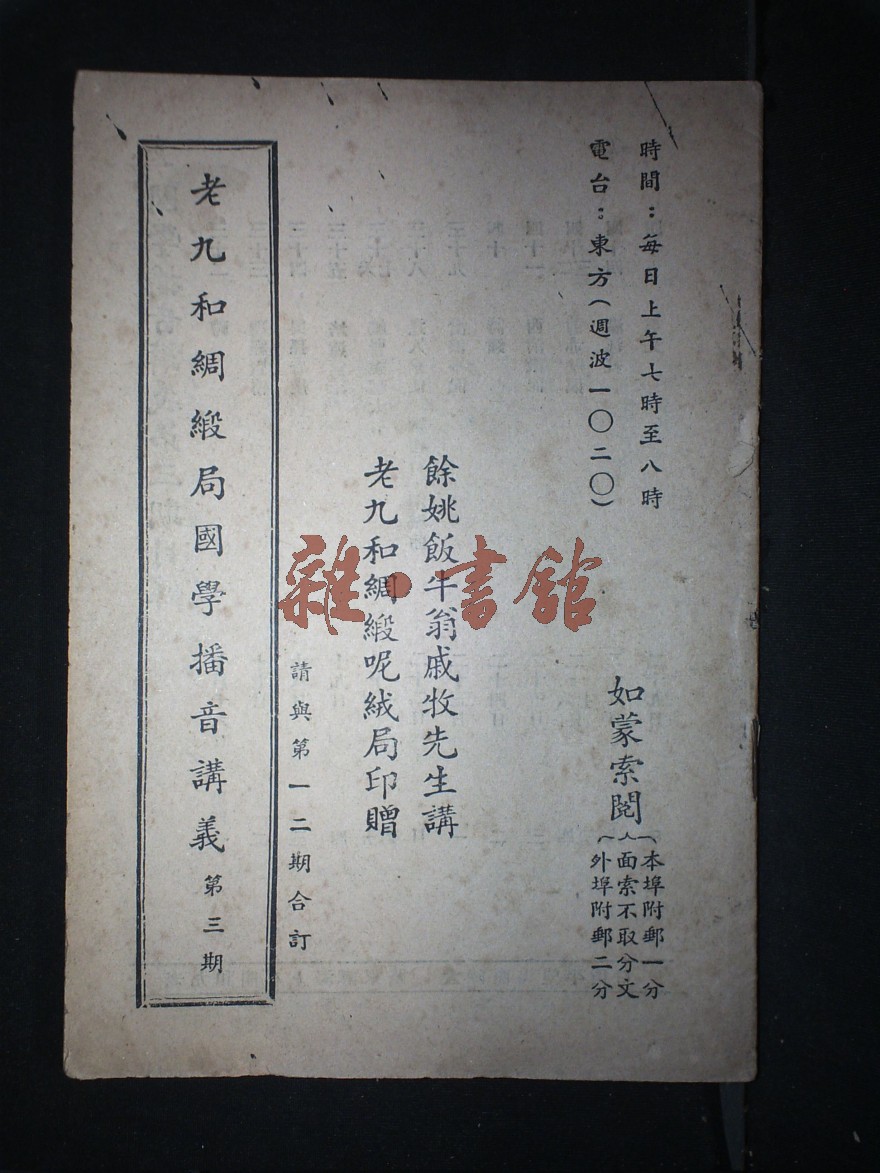 時間：每日上午七時至八時
電台：東方（週波一〇二〇）
如蒙索閱
本埠附郵一分
面索不取分文
外埠附郵二分
餘姚飯牛翁戚牧先生講
老九和綢緞呢絨局印贈
請與第一二期合訂
老九和綢緞局國學播音講義第三期
雜·書館